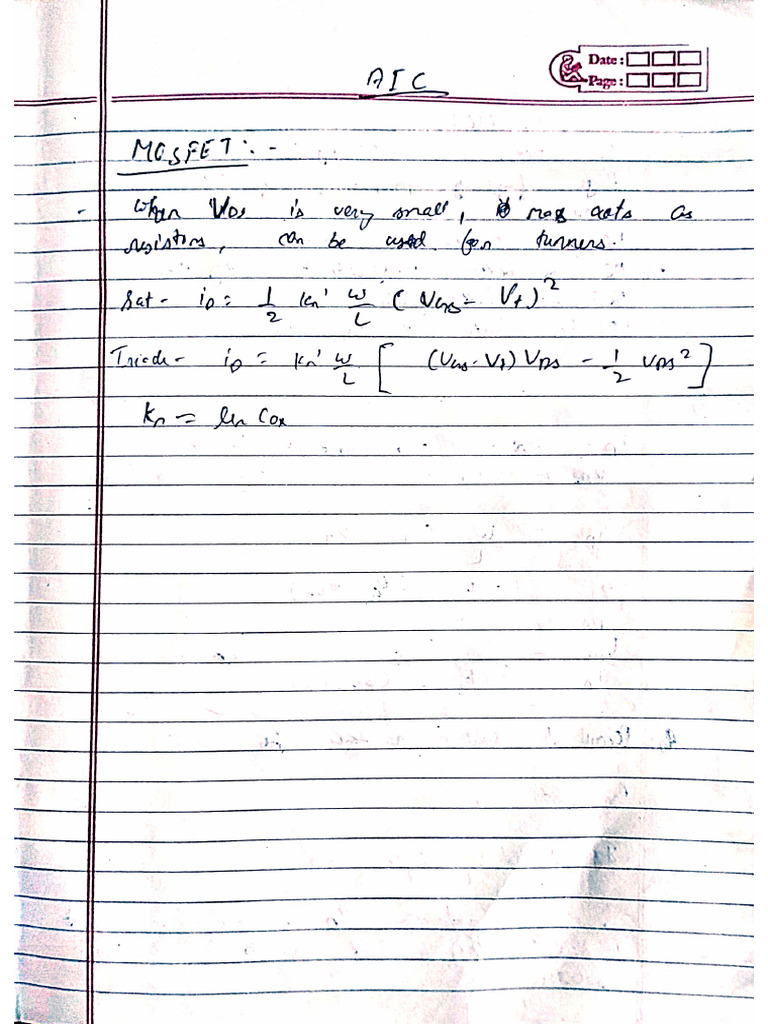 AIC
Date :
Page :
MOSFET:-
- When VDS is very small, mos acts as
resistors, can be used for tunners.
Sat - iD = 1/2 kn' W/L (VGS - Vt)²
Triode - iD = kn' W/L [ (VGS - Vt) VDS - 1/2 VDS² ]
kn = μn Cox